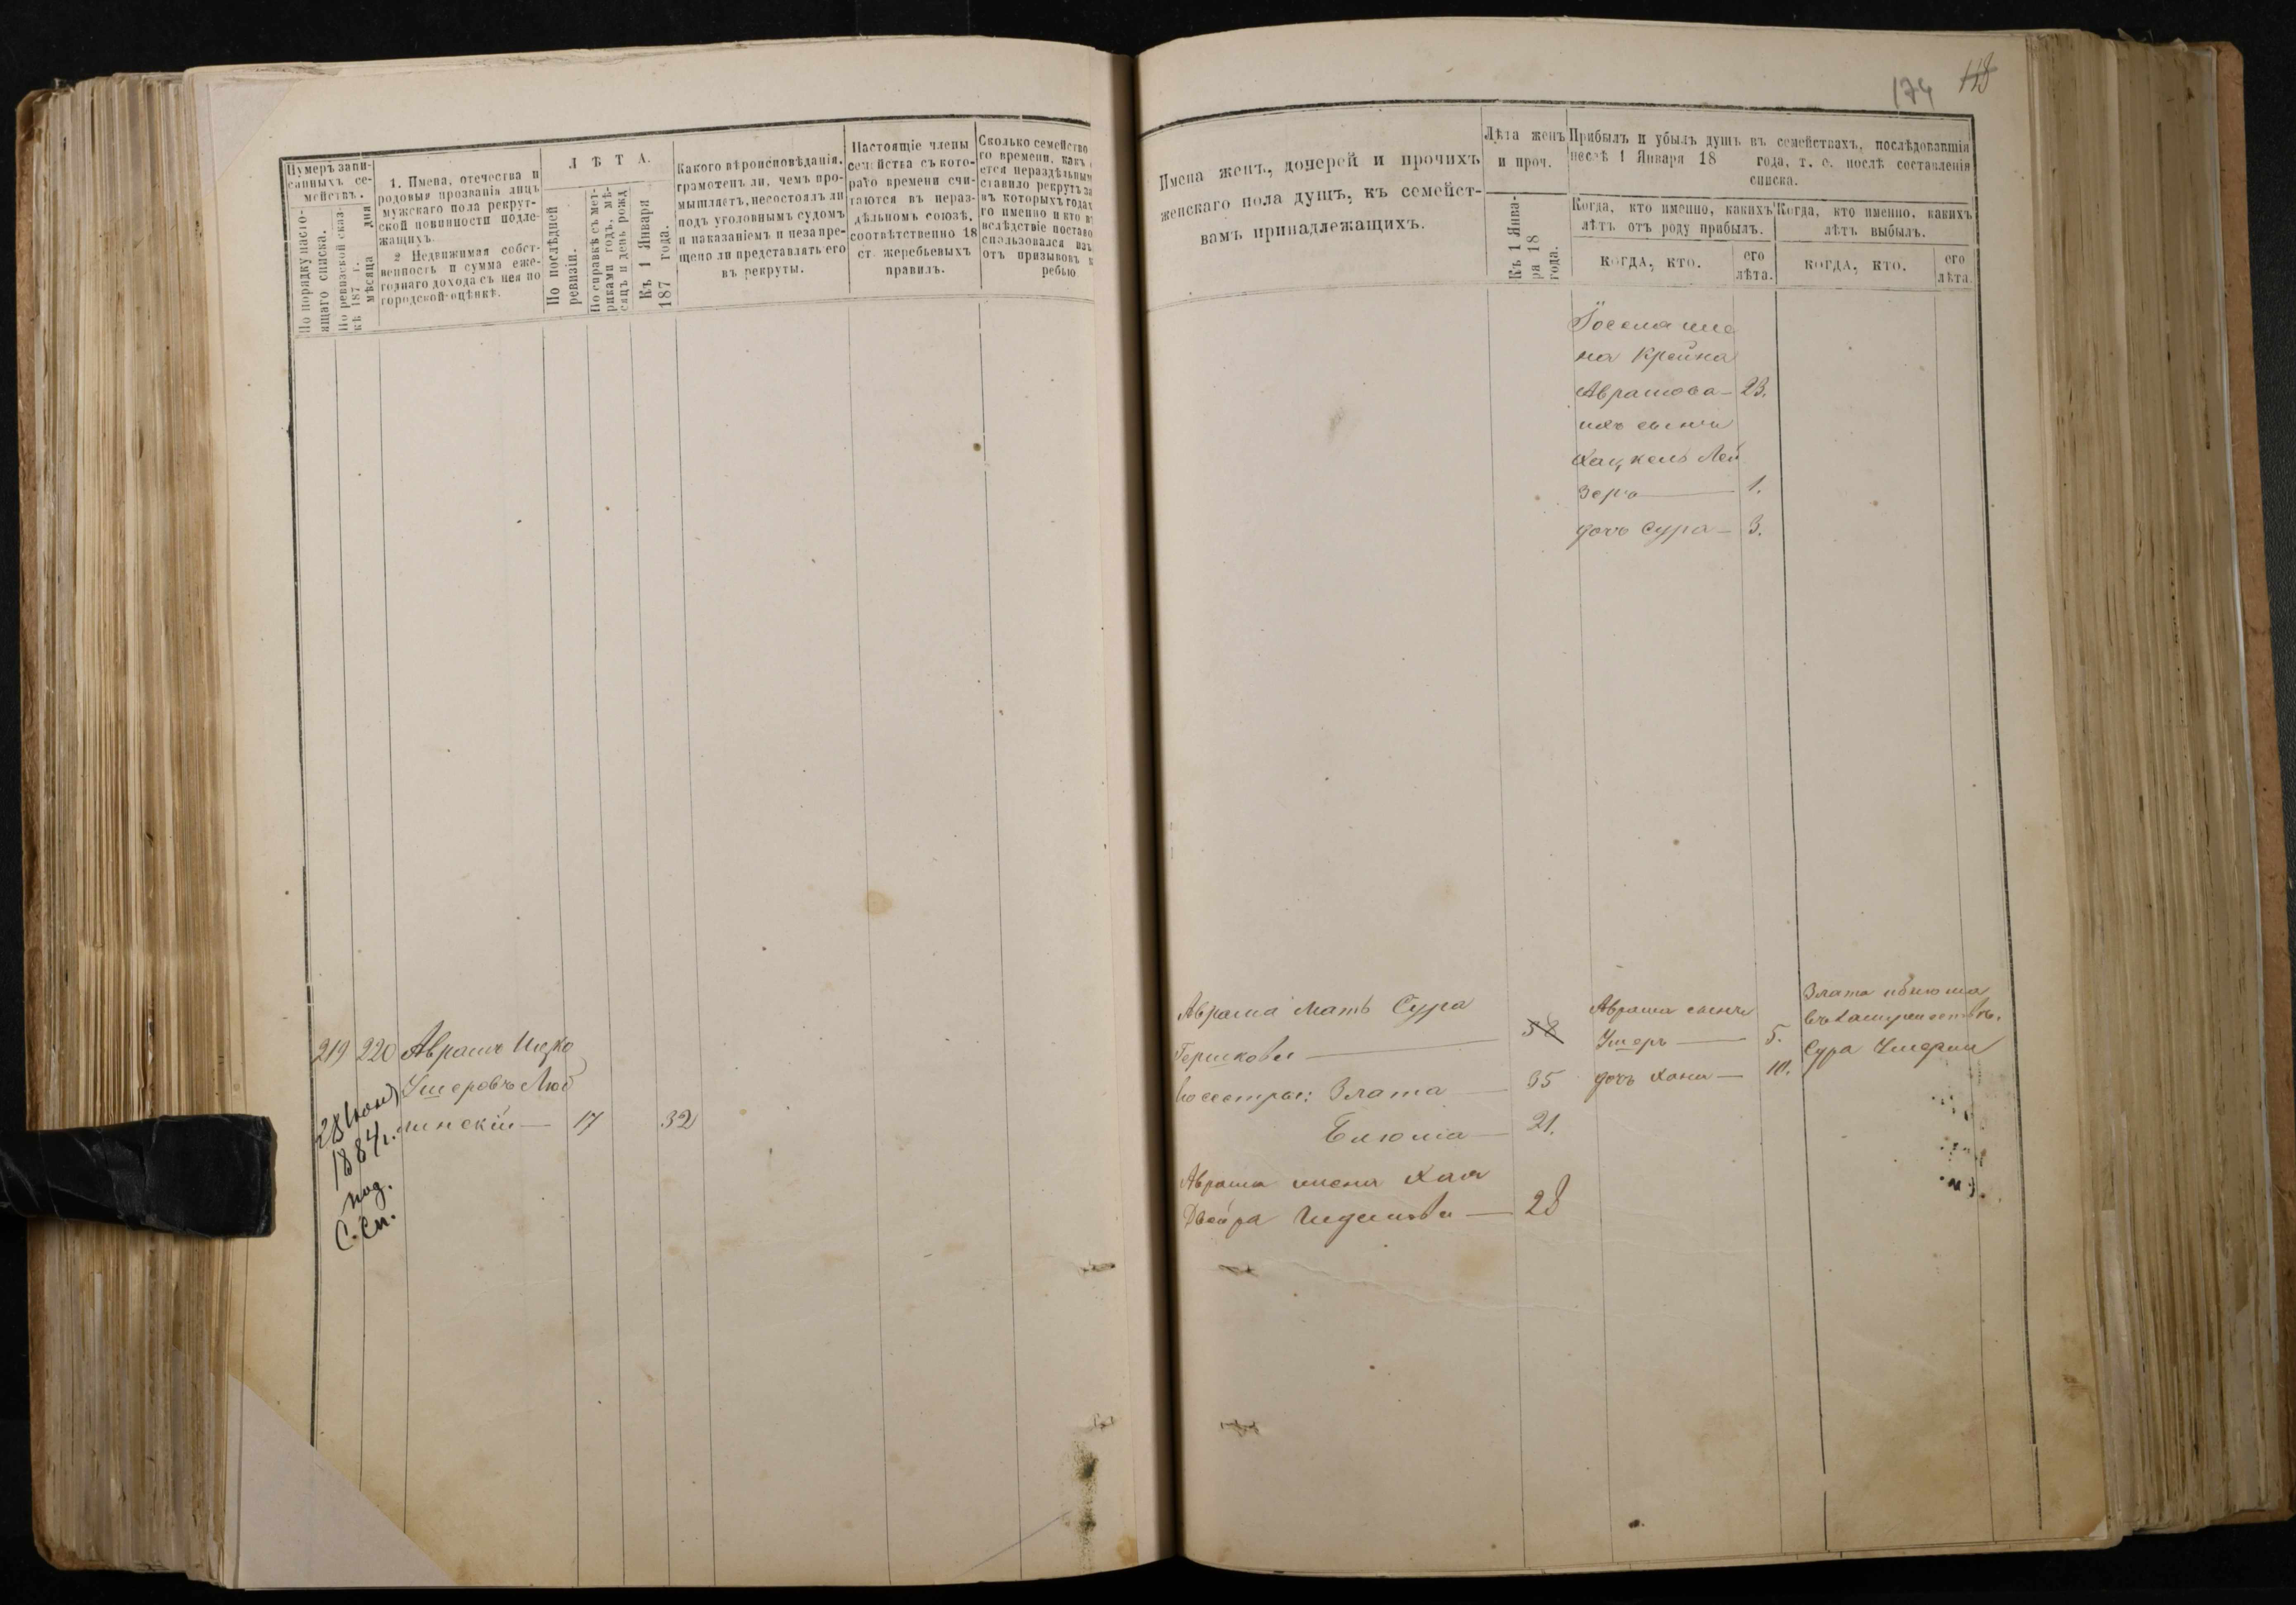 174 118
Нумеръ запи-
санныхъ се-
мействъ.
По порядку насто-
ящаго списка.
По ревизской сказ-
кѣ 187 г.
мѣсяца дня
1. Имена, отечества и
родовыя прозванія лицъ
мужскаго пола рекрут-
ской повинности подле-
жащихъ.
2 Недвижимая собст-
венность и сумма еже-
годнаго дохода съ нея по
городской оцѣнкѣ.
ЛѢТА.
По послѣдней
ревизіи.
По справкѣ съ мет-
риками годъ, мѣ-
сяцъ и день рожд
Къ 1 Января
187 года.
Какого вѣроисповѣданія.
грамотенъ ли, чемъ про-
мышляетъ, несостоялъ ли
подъ уголовнымъ судомъ
и наказаніемъ и незапре-
щено ли представлять его
въ рекруты.
Настоящіе члены
семейства съ кото-
раго времени счи-
таются въ нераз-
дѣльномъ союзѣ,
соотвѣтственно 18
ст. жеребьевыхъ
правилъ.
Сколько семейство
го времени, какъ
ется нераздѣльным
ставило рекрутъ за
въ которыхъ годах
го именно и кто в
вслѣдствіе постано
спользовался из
отъ призывовъ
ребью
Имена женъ, дочерей и прочихъ
женскаго пола душъ, къ семейст-
вамъ принадлежащихъ.
Лѣта женъ
и проч.
Къ 1 Янва-
ря 18
года.
Прибылъ и убылъ душъ въ семействахъ, послѣдовавшія
послѣ 1 Января 18 года, т. е. послѣ составленія
списка.
Когда, кто именно, какихъ
лѣтъ отъ роду прибылъ.
КОГДА, КТО.
его
лѣта.
Когда, кто именно, какихъ
лѣтъ выбылъ.
КОГДА, КТО.
его
лѣта.
на Крейна
Аврамова — 23.
ихъ сынъ
Хацкель Лей
зеръ — 1.
дочь Сура — 3.
219 220 Аврамъ Ицко
Ушеровъ Люб
линскій — 17 32
1884 г.
С. Сп.
Аврама мать Сура
Гершкова — 58
Его сестры: Злата — 35
Блюма — 21.
Аврама жена Хая
Двейра — 28
Аврама сынъ
Ушеръ — 5.
дочь Хана — 10.
Злата и Блюма
въ замужествѣ.
Сура Умерла